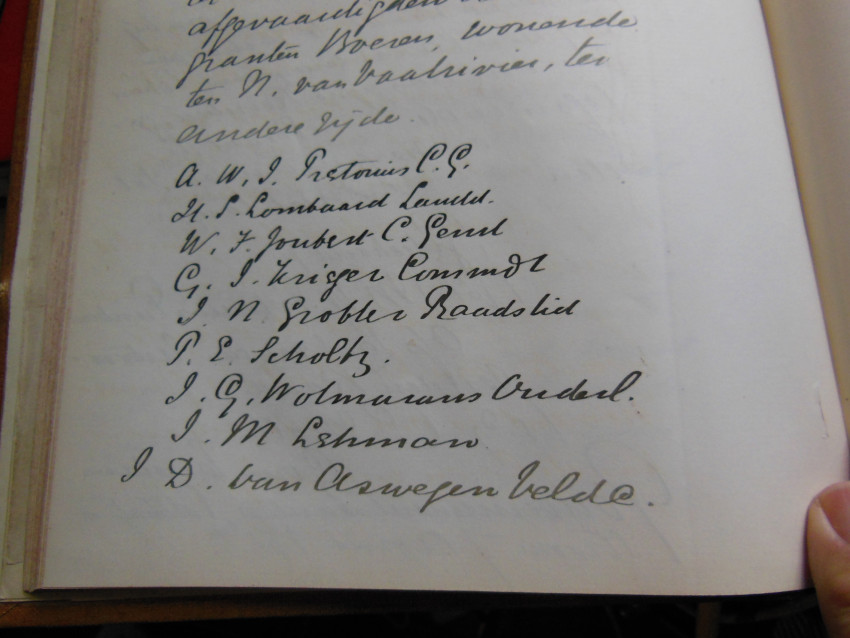 afgevaardigden
granten Boeren, wonende
ten N. van Vaalrivier, ter
andere zijde.
A. W. J. Pretorius C. G.
H. S. Lombaard Landd.
W. F. Joubert C. Genl
G. J. Kriger Commdt
J. N. Grobler Raadslid
P. E. Scholtz.
J. G. Wolmarans Ouderl.
J. M Lehman
J D. van Aswegen Veldc.